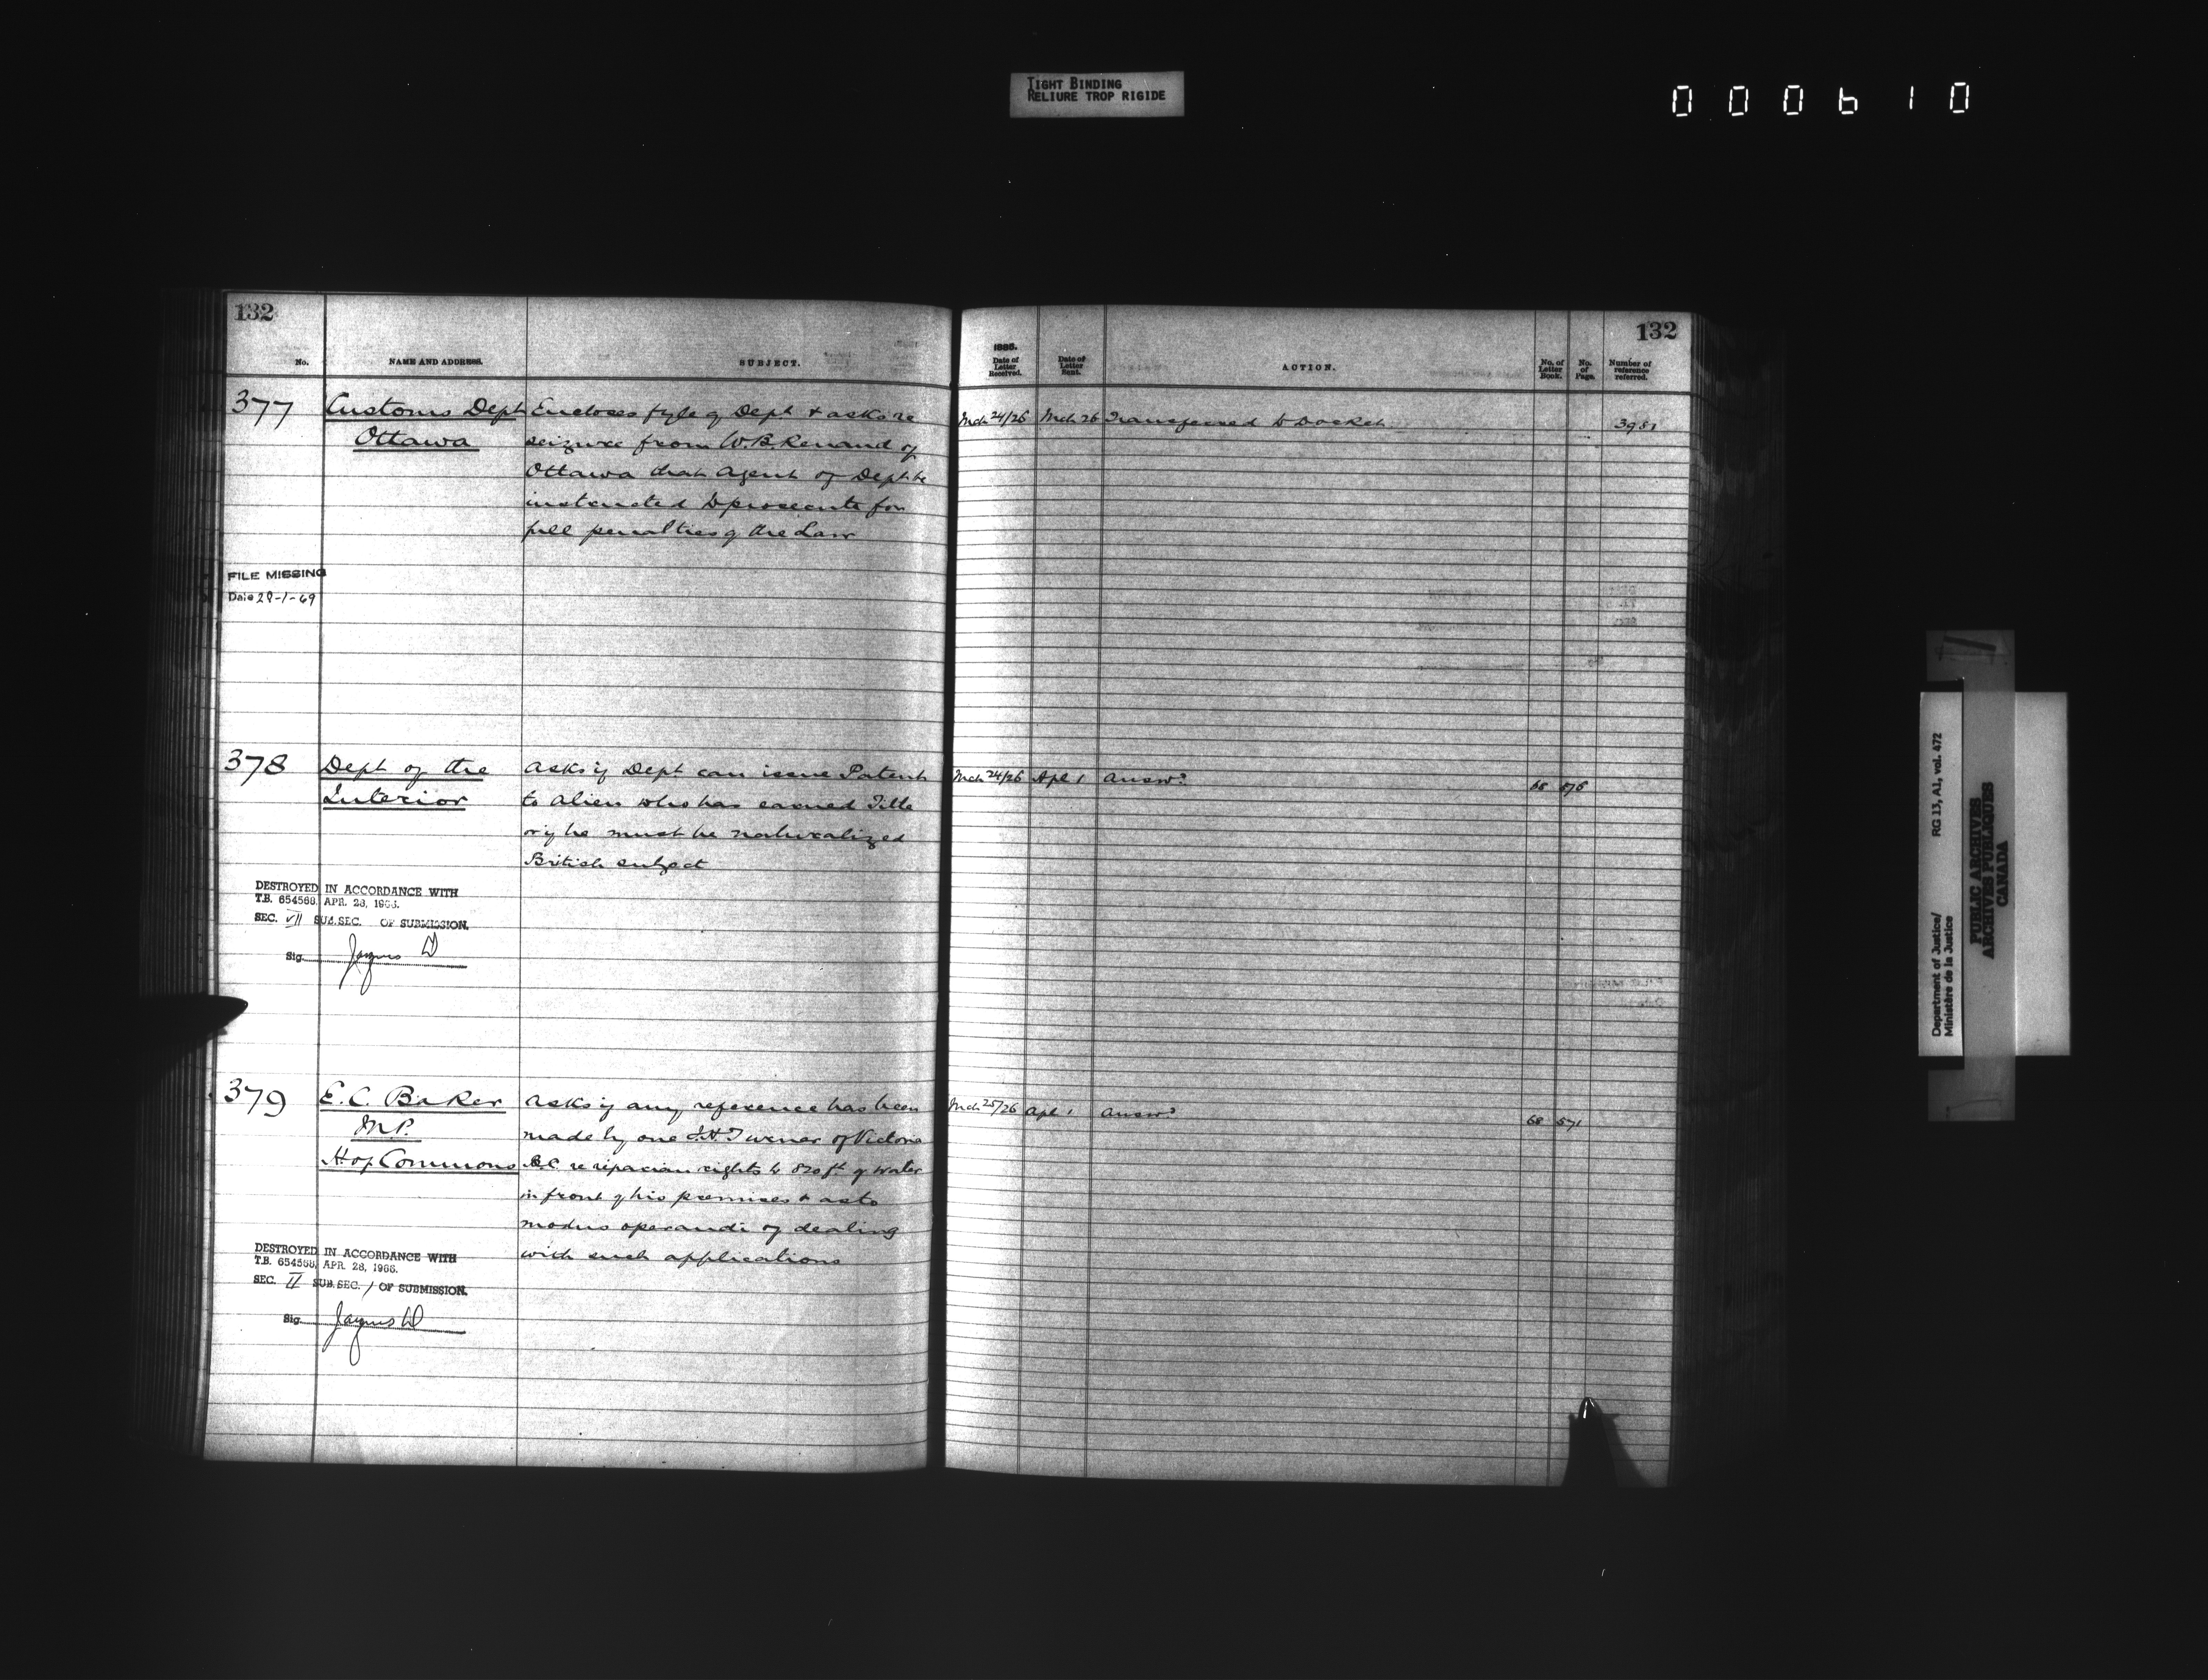 TIGHT BINDING
RELIURE TROP RIGIDE
000610
132
No.
NAME AND ADDRESS.
SUBJECT.
377
Customs Dept
Ottawa
Encloses fyle of Dept & asks re
seizure from W.B. Renaud of
Ottawa that Agent of Dept be
instructed to prosecute for
full penalties of the Law
FILE MISSING
Date 29-1-69
378
Dept of the
Interior
asks if Dept can issue Patent
to alien who has earned Title
or if he must be naturalized
British subject
DESTROYED IN ACCORDANCE WITH
T.B. 654568, APR. 28, 1966.
SEC. VII SUB.SEC. OF SUBMISSION.
Sig.
379
E.C. Baker
M.P.
H of Commons
asks if any reference has been
made by one J.H. Turner of Victoria
B.C. re riparian rights to 820 ft. of water
in front of his premises & as to
modus operandi of dealing
with such applications
DESTROYED IN ACCORDANCE WITH
T.B. 654568, APR. 28, 1966.
SEC. II SUB.SEC. 1 OF SUBMISSION.
Sig.
132
1885.
Date of
Letter
Received.
Date of
Letter
Sent.
ACTION.
No. of
Letter
Book.
No.
of
Page.
Number of
reference
referred.
Mch 24/26 Mch 26 Transferred to Docket 3981
Mch 24/26 Apl 1 Answd 68 576
Mch 25/26 Apl 1 Answd 68 571
Department of Justice/ RG 13, A1, vol. 472
Ministère de la Justice
PUBLIC ARCHIVES
ARCHIVES PUBLIQUES
CANADA